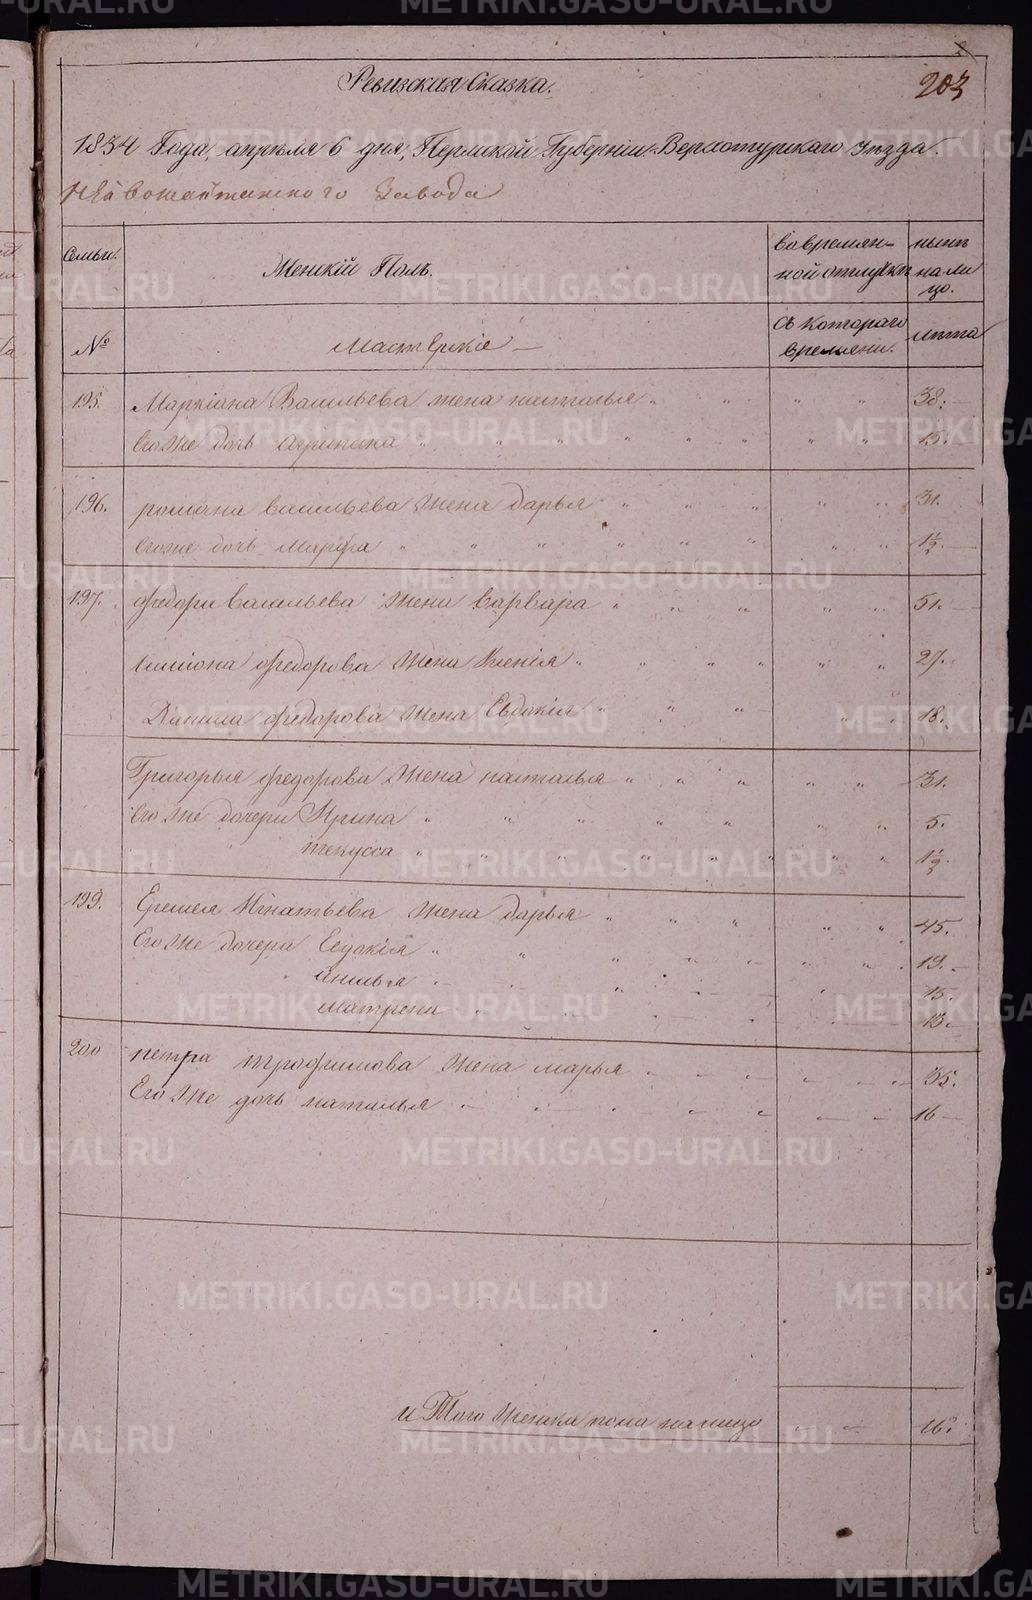 203
Ревизская Сказка.
1834 Года, апреля 6 дня, Пермской Губернии Верхотурскаго уезда.
Завода
Семьи.
Женский Полъ.
во времян-
ной отлучке
ныне
на ли
цо.
№
Мастерские
съ котораго
времяни.
лета
195. Маркиана Васильева жена наталья 38.
Его же дочь 15.
196. романа васильева жена дарья 31.
Его же дочь Марфа 1½
197. федора васильева жена варвара 51.
симиона федорова жена Ксения 27.
Данила федорова жена Евдокия 18.
Григорья федорова жена наталья 31.
Его же дочери Ирина 5.
1½.
199. Еремея Игнатьева жена дарья 45.
Его же дочери Евдокия 19.
15.
матрена 13.
200 петра трофимова жена марья 35.
Его же дочь наталья 16
и Того женска пола налицо 16.
METRIKI.GASO-URAL.RU